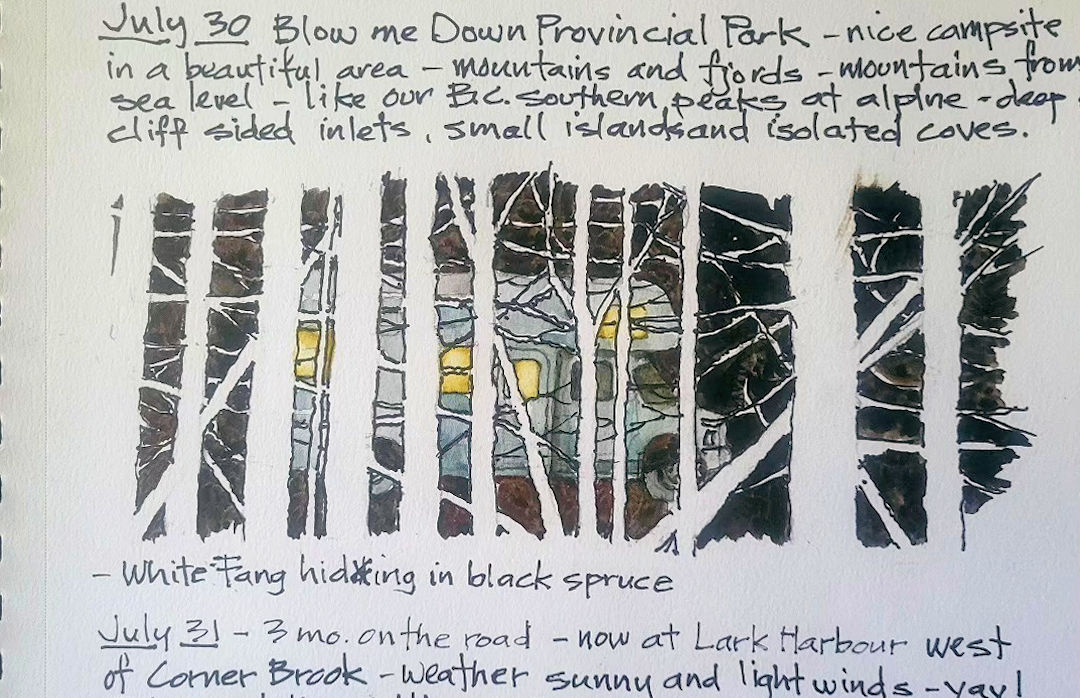 July 30 Blow me Down Provincial Park - nice campsite
in a beautiful area - mountains and fjords - mountains from
sea level - like our B.C. southern peaks at alpine - deep
cliff sided inlets, small islands and isolated coves.
- White Fang hiding in black spruce
July 31 - 3 mo. on the road - now at Lark Harbour west
of Corner Brook - weather sunny and light winds -